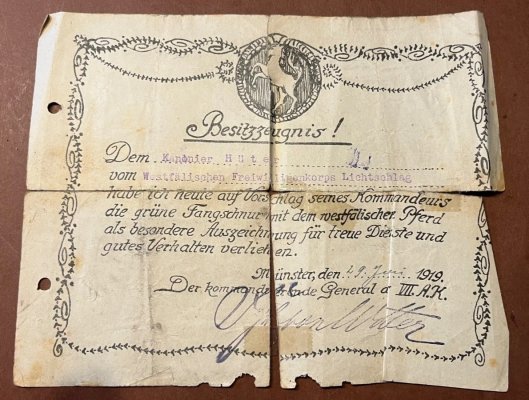 Besitzzeugnis!
Dem Kanonier Hüter
vom Westfälischen Freiwilligenkorps Lichtschlag
habe ich heute auf Vorschlag seines Kommandeurs
die grüne Fangschnur mit dem westfälischer Pferd
als besondere Auszeichnung für treue Dienste und
gutes Verhalten verliehen.
Münster, den 19. Juni 1919.
Der kommandierende General d VII. A.K.